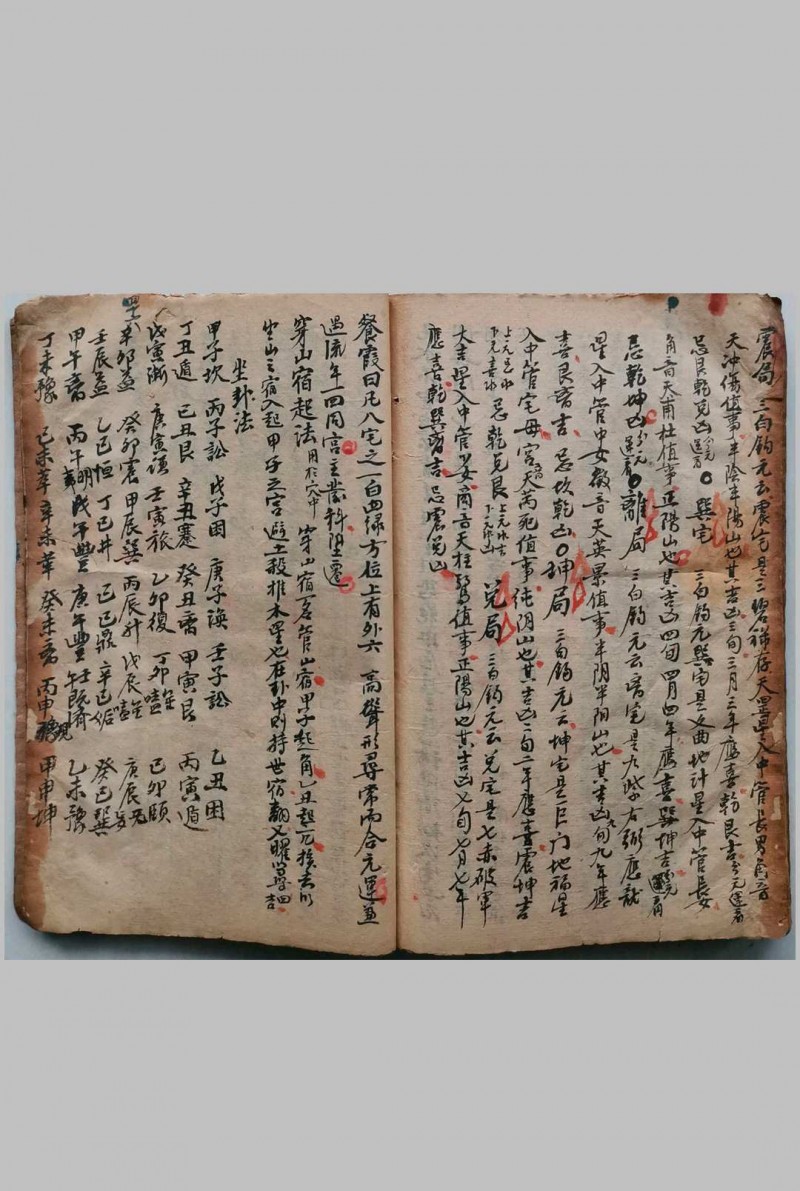 震局 三白鈎元云震宅是三碧祿存天罡星入中管長男角音
天冲傷值事半陰半陽山也其吉凶三旬三月三年應喜乾艮吉分元運看
忌艮乾兌凶分元運看〇巽宅 三白鈎元巽宅是文曲地計星入中管長女
角音天甫杜值事正陽山也其吉凶四旬四月四年應喜坤吉分元運看
忌乾坤凶分元運看〇離局 三白鈎元云离宅是九紫右弼應龍
星入中管中女徵音天英景值事半阴半阳山也其吉凶九旬九年應
喜艮离吉忌坎乾凶〇坤局 三白鈎元云坤宅是一巨门地福星
入中管宅母宫音天芮死值事純阴山也其吉凶二旬二年應喜震坤吉
上元 忌乾兌艮 兌局 三白鈎元云兌宅是七赤破軍
大吉星入中管少女商音天柱驚值事正陽山也其吉凶七旬七月七年
應喜乾巽离吉忌震兌凶
餐霞曰凡八宅之一白四绿方位上有外六高聳形尋常而合元運並
遇流年一四同宫主黌科堅遷
穿山宿起法用於穴中 穿山宿名管山宿甲子起角乙丑起亢挨去以
坐山之宿入起甲子之宫避土殺推木星也在卦中則持世宿翻又曜學四吉
坐卦法
甲子坎 丙子訟 戊子困 庚子渙 壬子訟 乙丑困
丁丑遁 己丑艮 辛丑蹇 癸丑离 甲寅艮 丙寅遁
戊寅漸 庚寅謙 壬寅旅 乙卯復 丁卯噬 己卯頤
辛卯益 癸卯震 甲辰巽 丙辰升 戊辰 庚辰
壬辰益 乙巳恒 丁巳井 己巳鼎 辛巳姤 癸巳巽
甲午离 丙午明夷 戊午豐 庚午豐 壬午既济 乙未豫
丁未豫 己未萃 辛未萃 癸未否 丙申 甲申坤